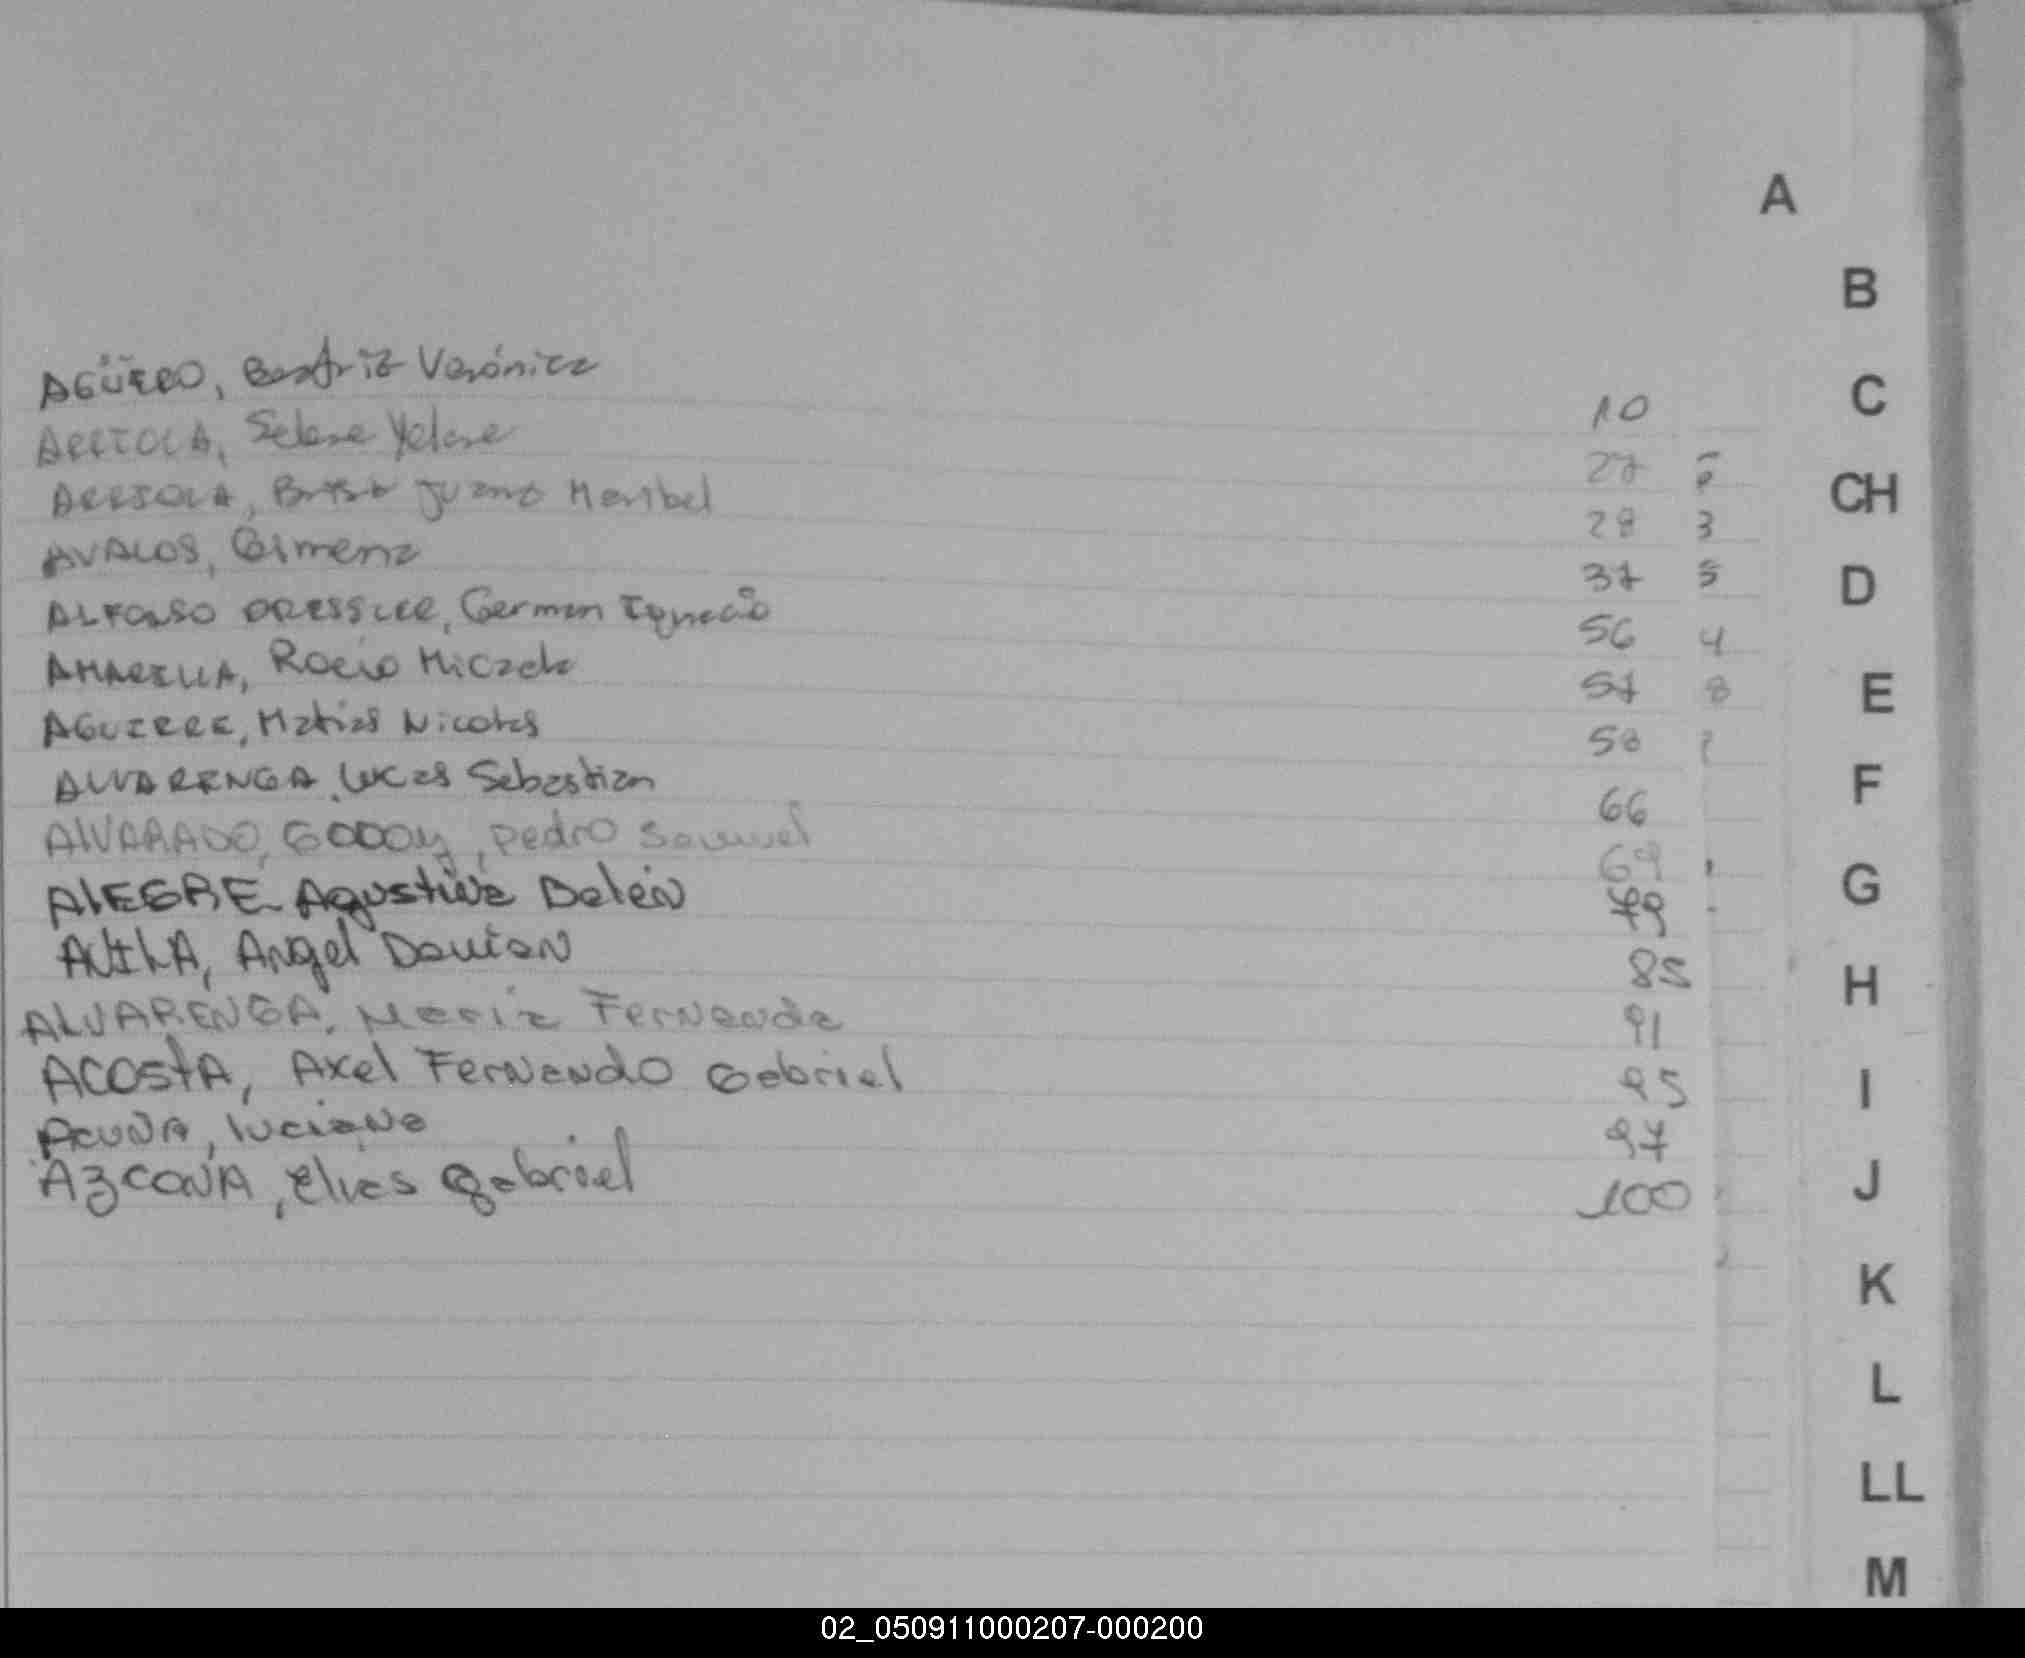 A
B
AGÜERO, Beatriz Verónica 10
C
ARRIOLA, Selene Yelene 27
ARRIOLA, Maribel 28 3
CH
AVALOS, Gimena 37 5
D
ALFONSO DRESSLER, German Ignacio 56 4
AMARILLA, Rocio Micaela 57 8
E
AGUIRRE, Matias Nicolas 58
ALVARENGA, Lucas Sebastian 66
F
ALVARADO, GODOY, Pedro Samuel 69
ALEGRE Agustina Belén 79
G
AVILA, Angel Damian 85
H
ALVARENGA, Maria Fernanda 91
ACOSTA, Axel Fernando Gabriel 95
I
ACUÑA, Luciana 97
AZCONA, Elias Gabriel 100
J
K
L
LL
M
02_050911000207-000200